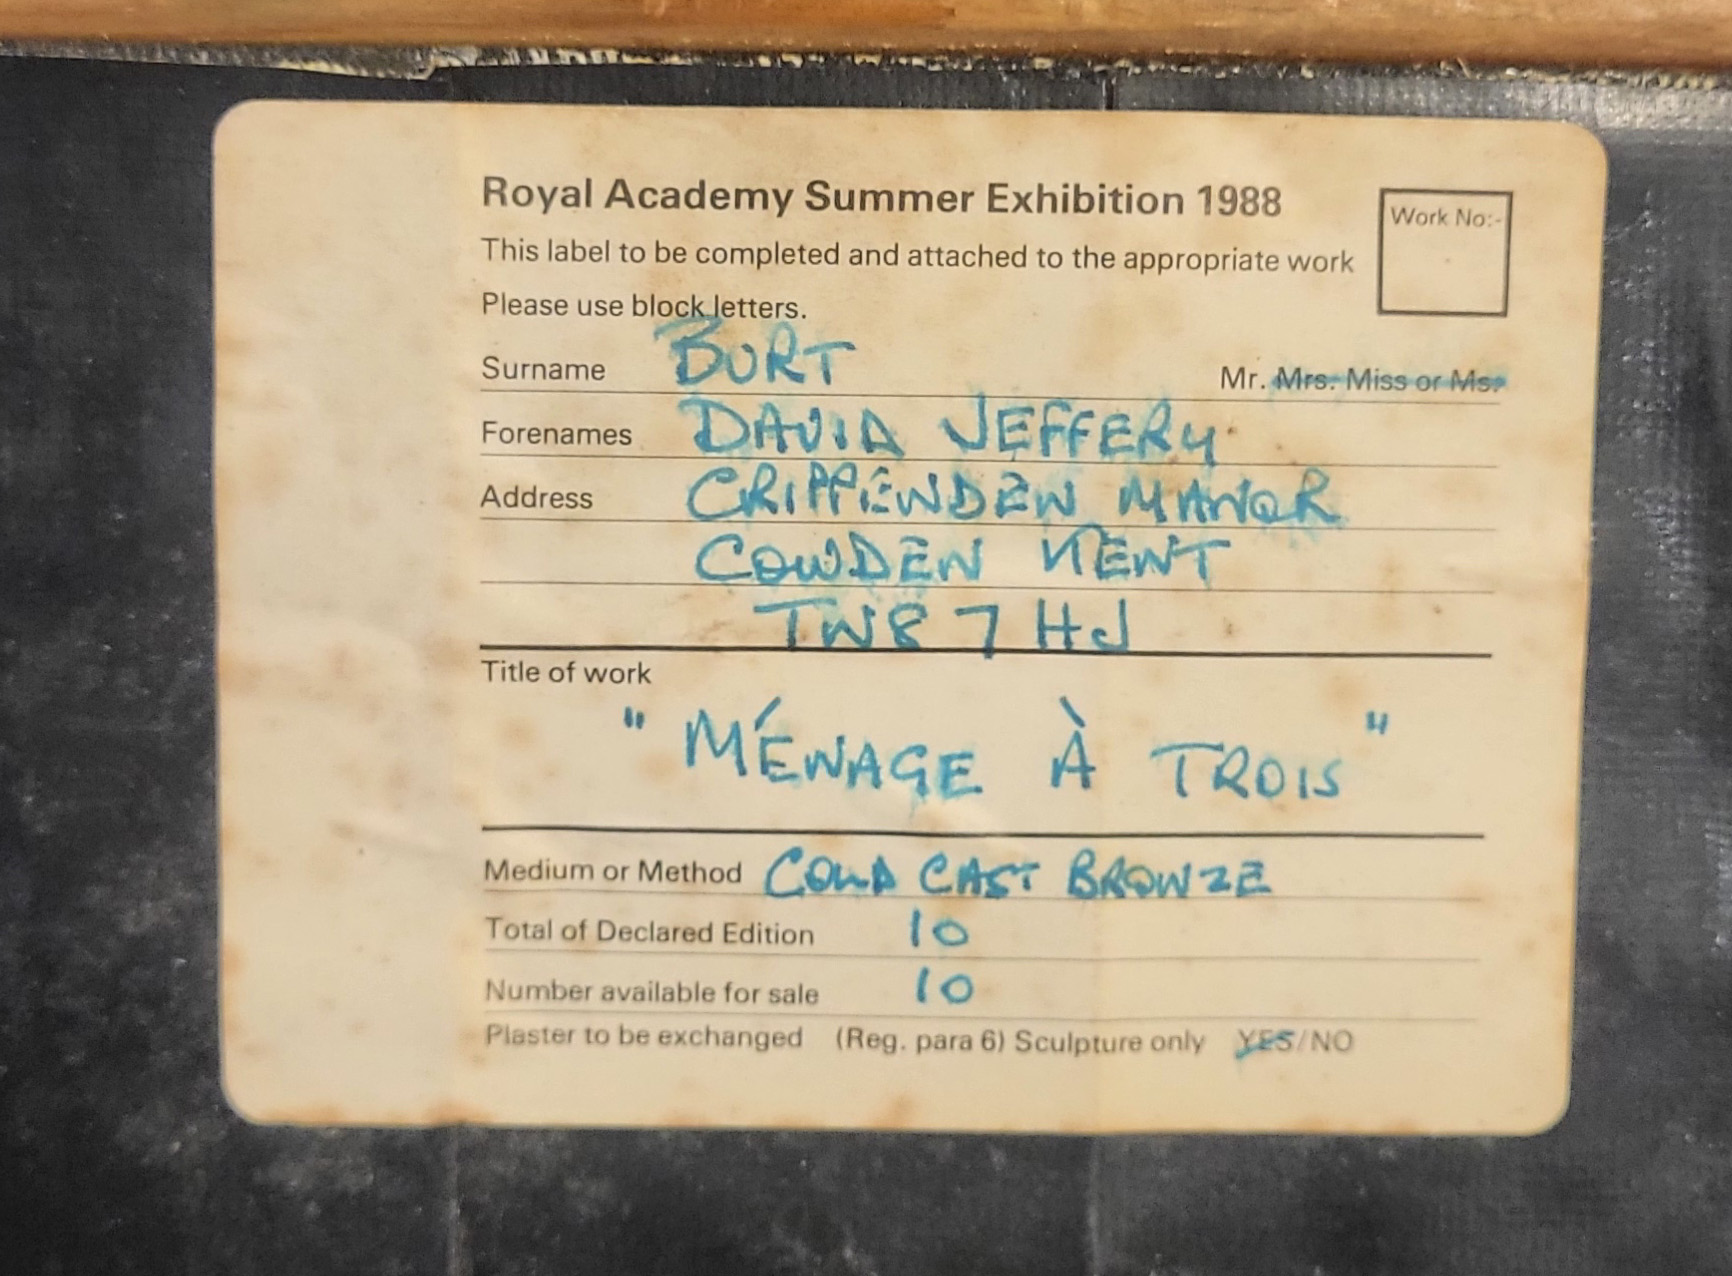 Royal Academy Summer Exhibition 1988
Work No:-
This label to be completed and attached to the appropriate work
Please use block letters.
Surname BURT Mr. Mrs. Miss or Ms.
Forenames DAVID JEFFERY
Address CRIPPENDEN MANOR
COWDEN KENT
TW8 7HJ
Title of work
"MÉNAGE À TROIS"
Medium or Method COLD CAST BRONZE
Total of Declared Edition 10
Number available for sale 10
Plaster to be exchanged (Reg. para 6) Sculpture only YES/NO